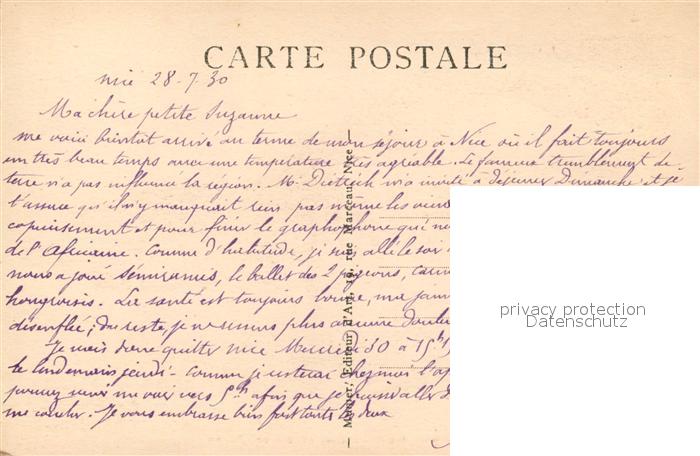 CARTE POSTALE
Nice 28-7-30
Ma chère petite Suzanne
me voici bientôt arrivé au terme de mon séjour à Nice où il fait toujours
un très beau temps avec une température très agréable. Le fameux tremblement de
terre n'a pas influencé la région. Mr Dietrich m'a invité à déjeuner Dimanche et je
t'assure qu'il n'y manquait rien pas même les
copieusement et pour finir le graphophone qui
de l'Africaine. Comme d'habitude, je suis allé le soir
nous a joué Sémiramis, le ballet des 2 pigeons,
hongroises. La santé est toujours bonne, ma
désenflée; du reste, je ne sens plus aucune
Je vais donc quitter Nice Mercredi 30 à 15h
le lendemain jeudi. Comme je resterai chez moi
pourrez venir me voir vers 5h afin que je puisse aller
me coucher. Je vous embrasse bien fort toutes les deux
Munier, Editeur d'Art, rue Marceau, Nice
privacy protection
Datenschutz